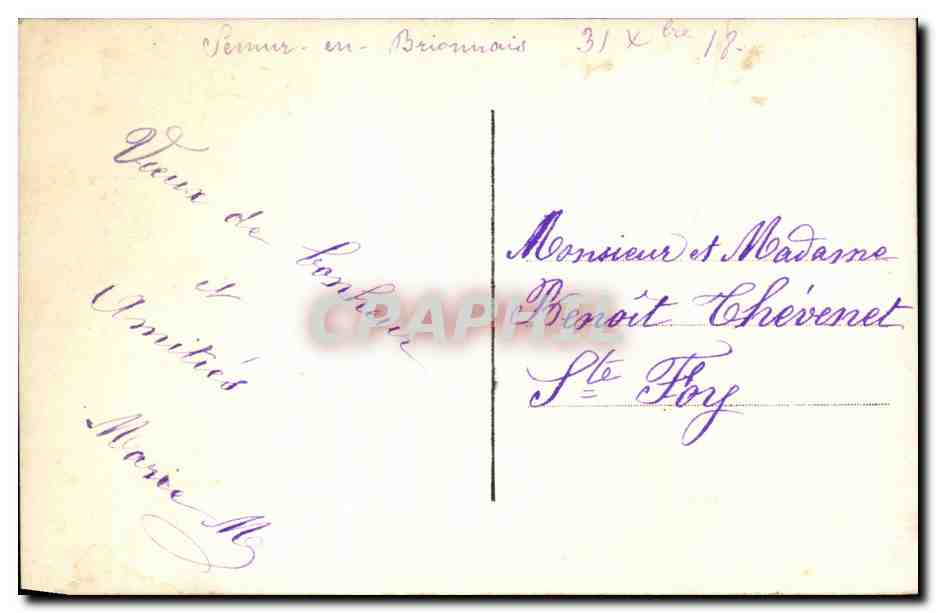 Semur-en-Brionnais 31 Xbre 18.
Vœux de bonheur
et
Amitiés
Marie M
Monsieur et Madame
Benoît Thévenet
Ste Foy
CPAPHIL